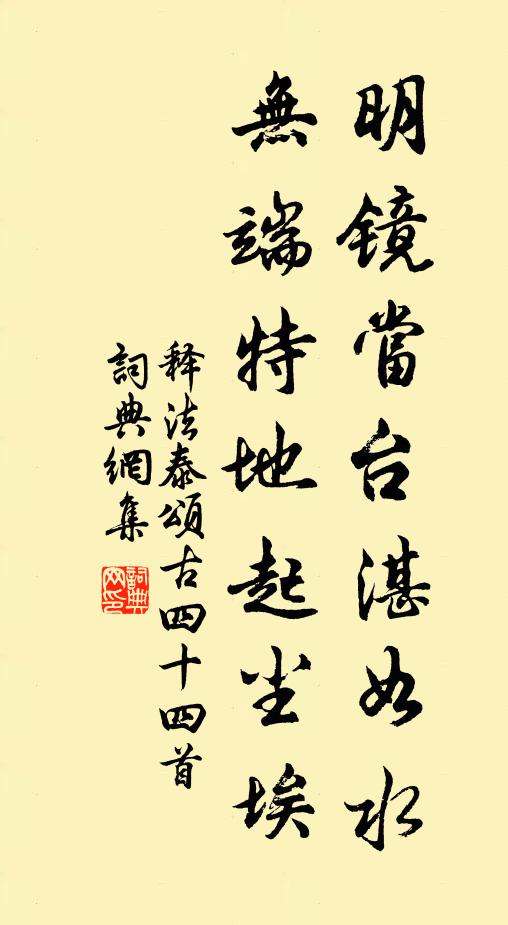 明镜當台湛如水
無端特地起尘埃
释法泰頌古四十四首
詞典網集
詞典网印